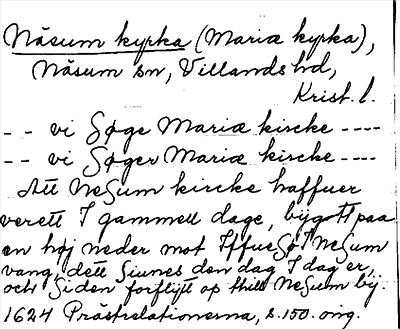 Näsum kyrka (Mariæ kyrka),
Näsum sn, Villands hd,
Krist. l.
- - vi Søge Mariæ kircke ----
- - vi Søger Mariæ kircke ----
Att Nesum kircke haffuer
verett I gammell dage, bijgott paa
en høj neder mot Iffuesø I Nesum
vang, dett siunes den dag I dag er,
och siden forflijtt op thill Nesum by.
1624 Prästrelationerna, s. 150. orig.